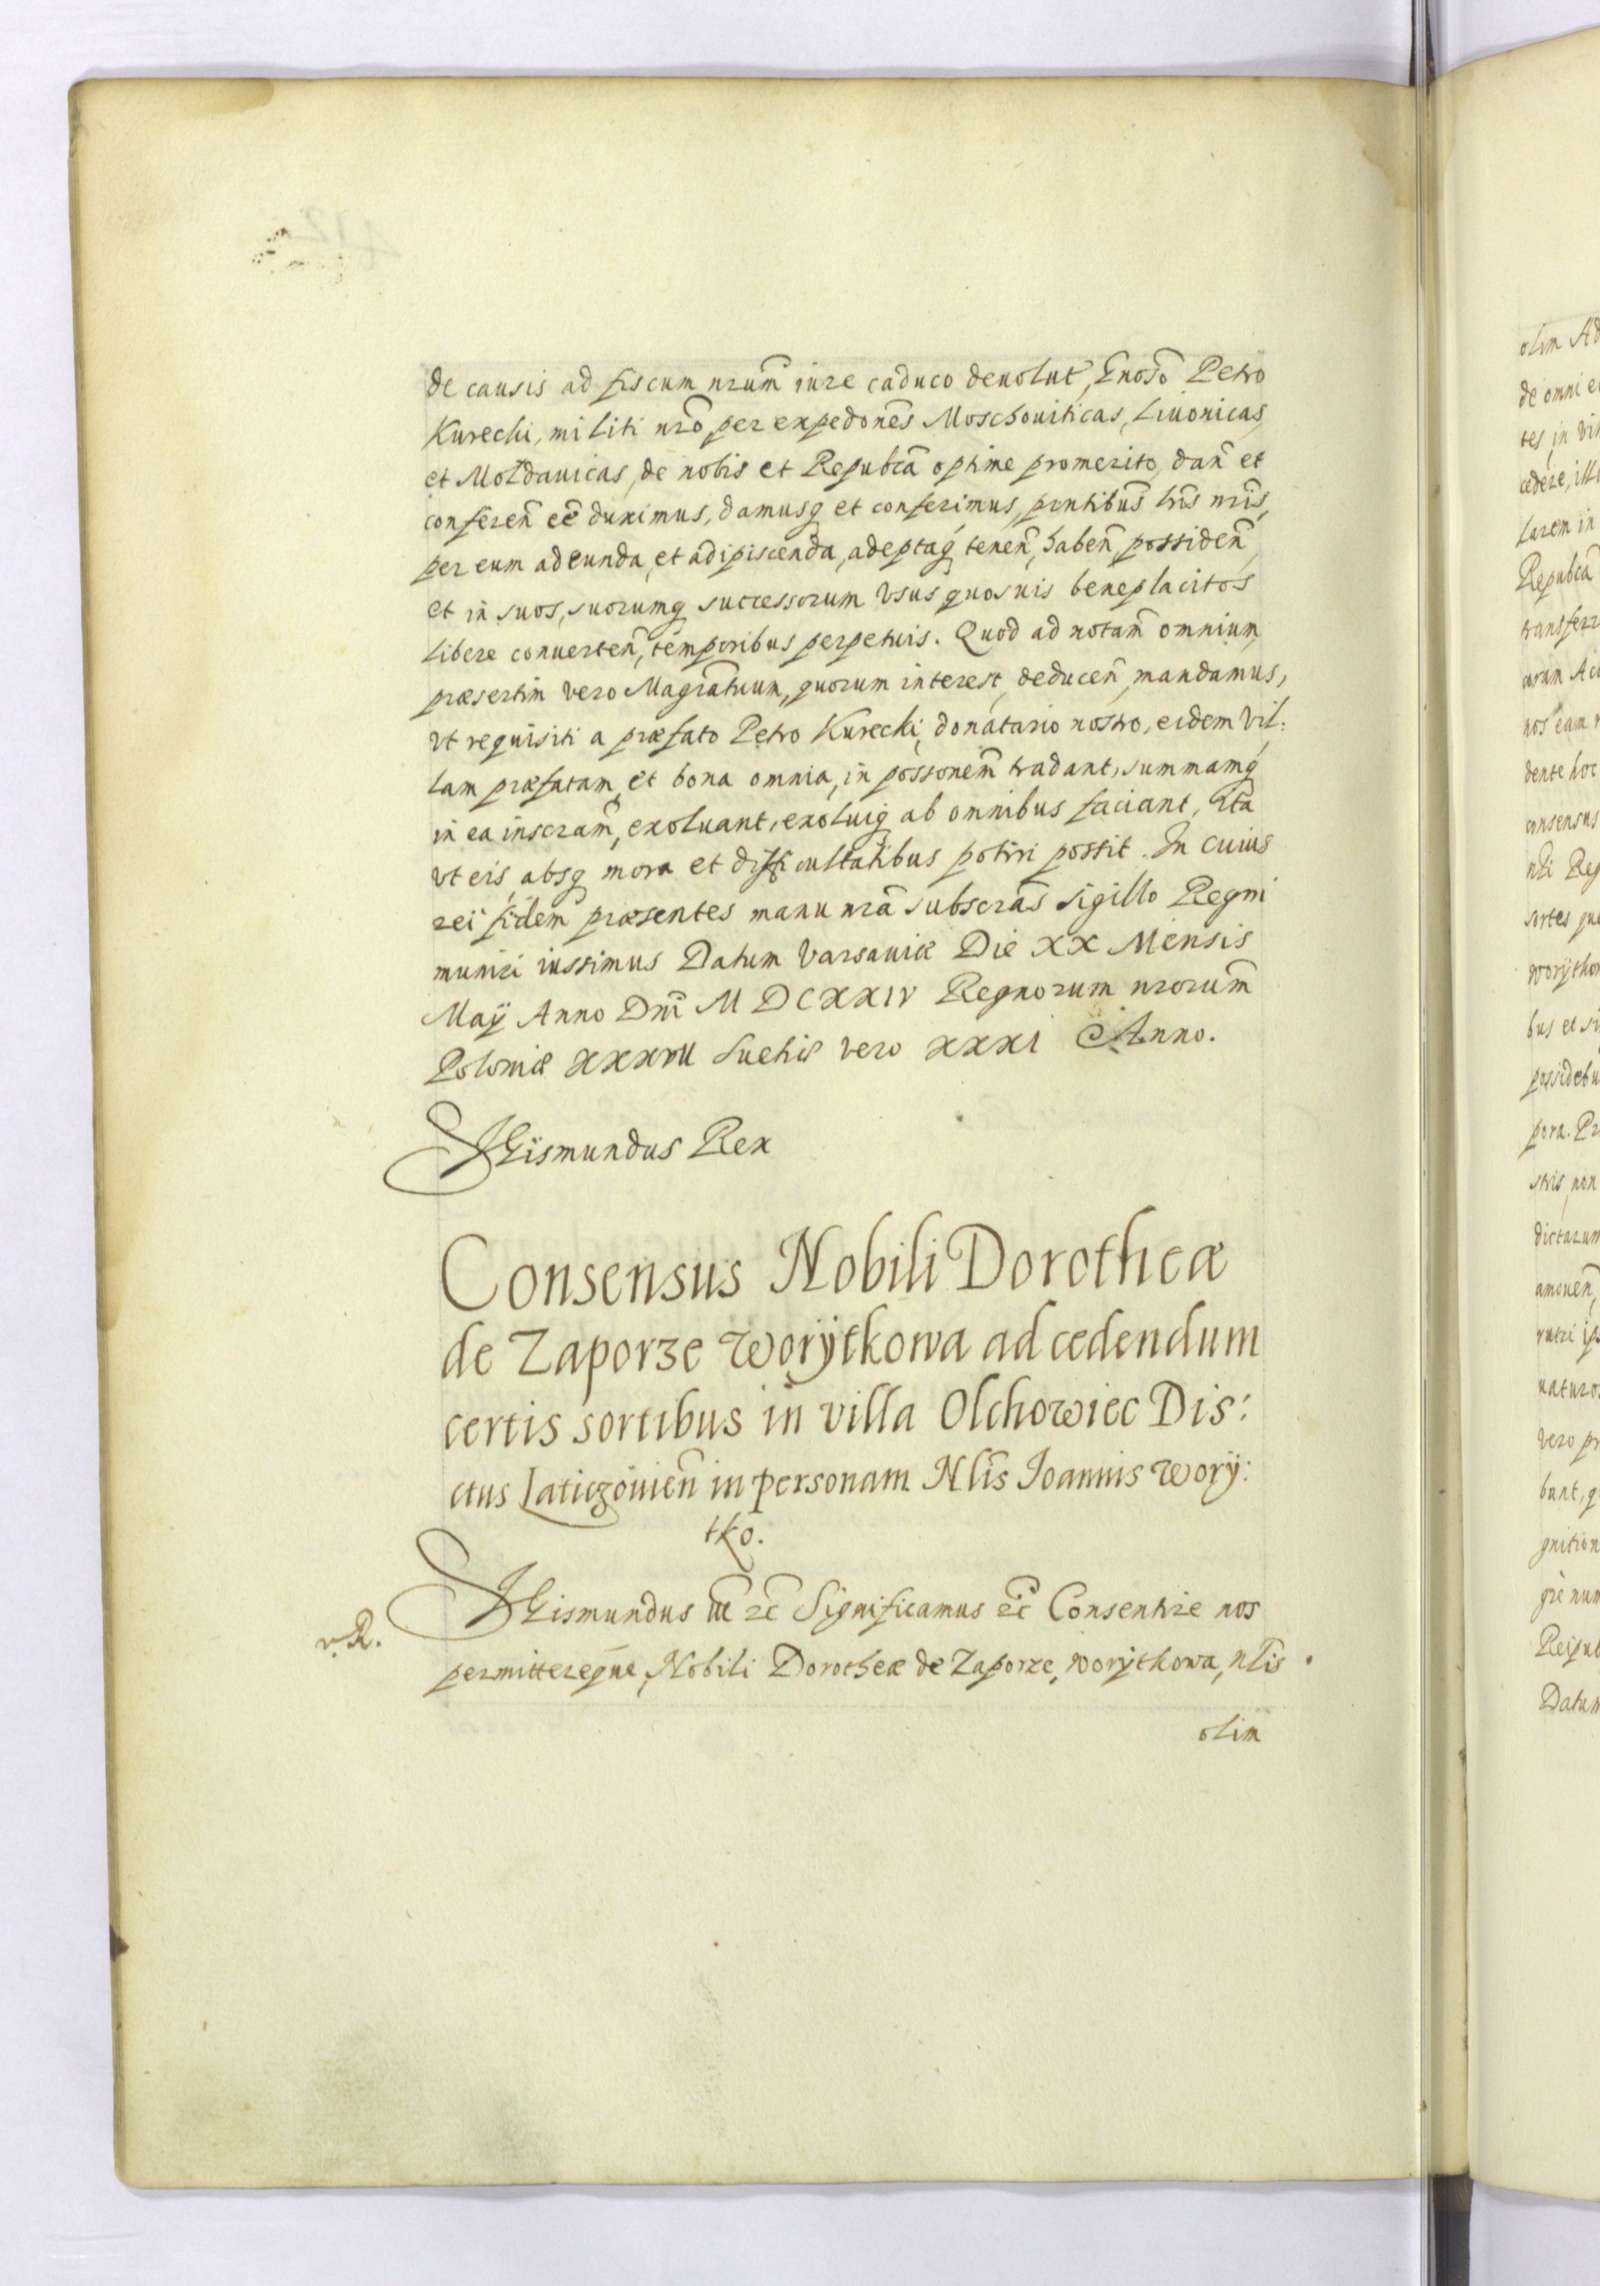 de causis ad fiscum nrum̃ iure caduco deuolut̃, Gnoso͂ Petro
Kurecki, militi nro͂, per expedone͂s Moschouiticas, Liuonicas,
et Moldauicas, de nobis et Republca͂ optime promerito, dan͂ et
conferen͂ ee͂ duximus, damusq et conferimus, pntibus͂ lris͂ nris͂,
per eum adeunda, et adipiscenda, adeptaq, tenen͂, haben͂, possiden͂,
et in suos, suorumq successorum Vsus quosuis beneplacitos
libere conuerten͂, temporibus perpetuis. Quod ad notam͂ omnium,
præsertim vero Magratuum͂, quorum interest, deducen͂, mandamus,
vt requisiti a præfato Petro Kurecki, donatario nostro, eidem vil:
lam præfatam, et bona omnia, in possonem͂ tradant, summamq
in ea inscram͂, exoluant, exoluiq ab omnibus faciant, Ita͂
vt eis, absq mora et difficultatibus potiri possit. In cuius
rei fidem præsentes manu nra͂ subscras͂ Sigillo Regni
muniri iussimus Datum Varsauiæ Die XX Mensis
Maÿ Anno Dni͂ M DCXXIV Regnorum nrorum͂
Poloniæ XXXVII Suetiæ vero XXXI Anno.
Sigismundus Rex
Consensus Nobili Dorotheæ
de Zaporze Worÿtkowa ad cedendum
certis sortibus in villa Olchowiec Dis:
ctus Laticzouien͂ in personam Nlis͂ Joannis Worÿ:
tko.
v. R.
Sigismundus III͂ &c͂ Significamus &c͂ Consentire nos
permittereque, Nobili Dorotheæ de Zaporze, Worÿtkowa, nlis͂
olim
olim Ad
de omni
tes, in vi
cedere, ill
larem in
Republca͂
transferr
dente hoc
consensus
sortes
bus et si
possidebu
pora. Pr
stris, non
dictarum
amouen͂,
vero pr
bunt, q
Reipub
Datum